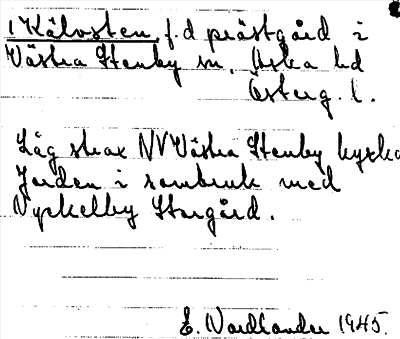 1 Kälvesten, f.d prästgård i
Västra Stenby sn. Aska hd
Österg. l.
Låg strax NV Västra Stenby kyrka
Jorden i sambruk med
Nyckelby Storgård.
E. Nordlander 1945.